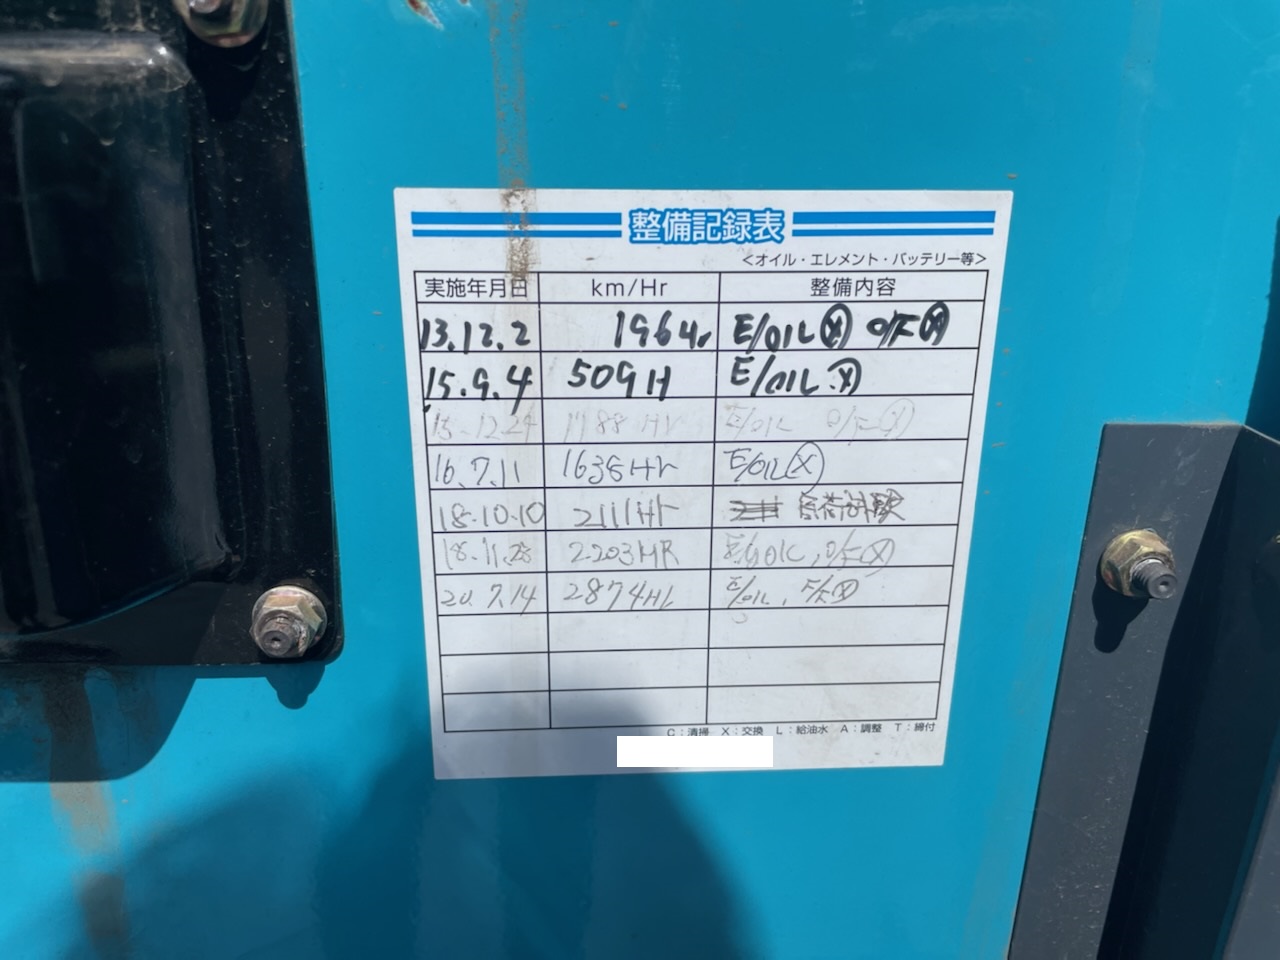 整備記録表
<オイル・エレメント・バッテリー等>
実施年月日 km/Hr 整備内容
13.12.2 196Hr E/OIL Ⓧ O/F Ⓧ
15.9.4 509H E/OIL Ⓧ
15.12.24 1188Hr E/OIL O/F Ⓧ
16.7.11 1638Hr E/OIL Ⓧ
18.10.10 2111Hr 負荷試験
18.11.28 2203HR E/OIL, O/F Ⓧ
20.7.14 2874Hr E/OIL, F/ Ⓧ
C：清掃 X：交換 L：給油水 A：調整 T：締付